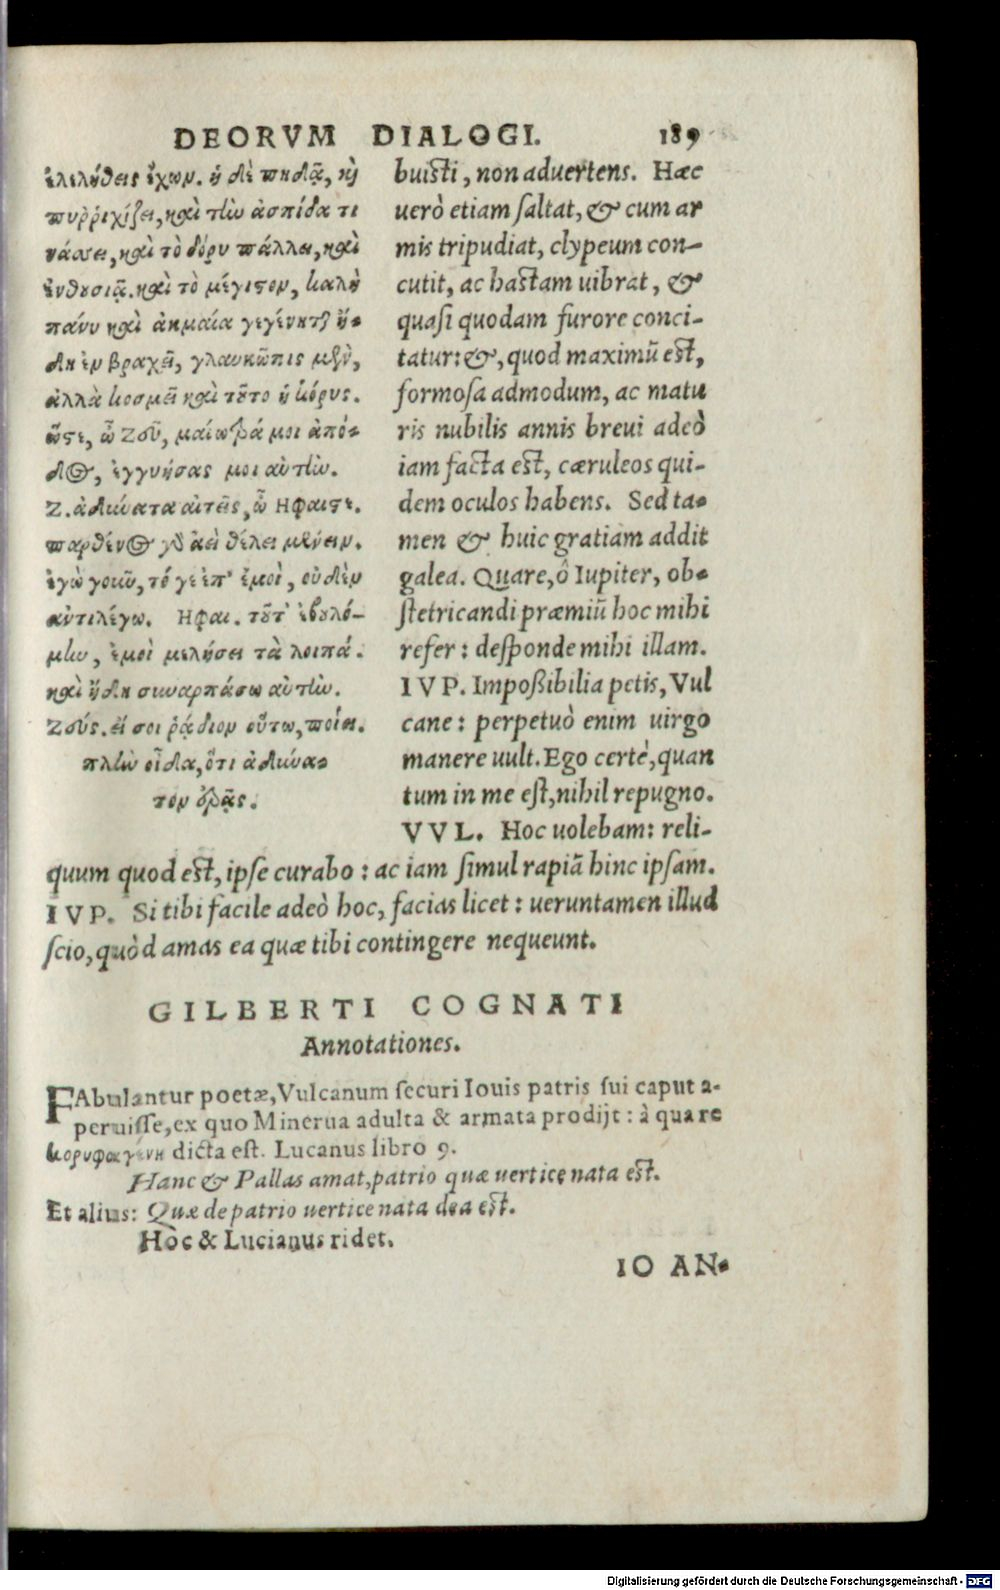 DEORVM DIALOGI. 189
ἐλελήθεις ἔχων. ἡ δὲ πηδᾷ, καὶ
πυῤῥιχίζει, καὶ τὴν ἀσπίδα τι
νάσσει, καὶ τὸ δόρυ πάλλει, καὶ
ἐνθουσιᾷ. καὶ τὸ μέγιστον, καλὴ
πάνυ καὶ ἀκμαία γεγένηται ἤ-
δη ἐν βραχεῖ, γλαυκῶπις μὲν,
ἀλλὰ κοσμεῖ καὶ τοῦτο ἡ κόρυς.
ὥστε, ὦ Ζεῦ, μαίωτρά μοι ἀπό-
δος, ἐγγυήσας μοι αὐτήν.
Ζ. ἀδύνατα αἰτεῖς, ὦ Ηφαιστε.
παρθένος γὰρ ἀεὶ θέλει μένειν.
ἐγὼ γοῦν, τό γε ἐπ' ἐμοὶ, οὐδὲν
ἀντιλέγω. Ηφαι. τοῦτ' ἐβουλό-
μην, ἐμοὶ μελήσει τὰ λοιπά.
καὶ ἤδη συναρπάσω αὐτήν.
Ζεύς. εἴ σοι ῥᾴδιον οὕτω, ποίει.
πλὴν οἶδα, ὅτι ἀδύνα-
των ἐρᾷς.
buisti, non aduertens. Hæc
uerò etiam saltat, & cum ar
mis tripudiat, clypeum con-
cutit, ac hastam uibrat, &
quasi quodam furore conci-
tatur: &, quod maximũ est,
formosa admodum, ac matu
ris nubilis annis breui adeò
iam facta est, cæruleos qui-
dem oculos habens. Sed ta-
men & huic gratiam addit
galea. Quare, ô Iupiter, ob-
stetricandi præmiũ hoc mihi
refer: desponde mihi illam.
IVP. Impoßibilia petis, Vul
cane: perpetuò enim uirgo
manere uult. Ego certè, quan
tum in me est, nihil repugno.
VVL. Hoc uolebam: reli-
quum quod est, ipse curabo: ac iam simul rapiã hinc ipsam.
IVP. Si tibi facile adeò hoc, facias licet: ueruntamen illud
scio, quòd amas ea quæ tibi contingere nequeunt.
GILBERTI COGNATI
Annotationes.
FAbulantur poetæ, Vulcanum securi Iouis patris sui caput a-
peruisse, ex quo Minerua adulta & armata prodijt: à qua re
κορυφαγένη dicta est. Lucanus libro 9.
Hanc & Pallas amat, patrio quæ uertice nata est.
Et alius: Quæ de patrio uertice nata dea est.
Hoc & Lucianus ridet.
IO AN-
Digitalisierung gefördert durch die Deutsche Forschungsgemeinschaft - DFG